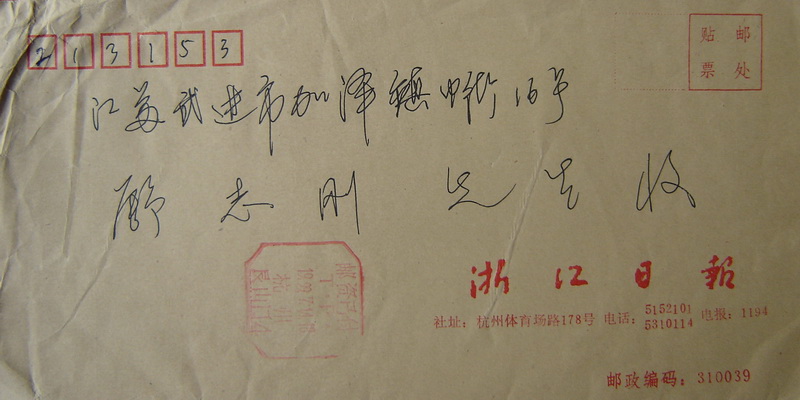 213153
贴邮
票处
江苏武进市加泽镇中街16号
顾志刚 先生收
浙江日报
社址：杭州体育场路178号 电话：5152101 5310114 电报：1194
邮政编码：310039